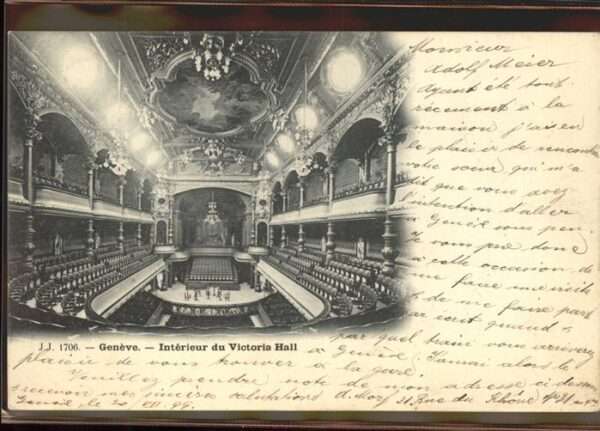 Monsieur
Adolf Meier
Ayant été tout
récemment à la
maison j'ai eu
le plaisir de rencontrer
votre sœur qui m'a
dit que vous avez
l'intention d'aller
à Genève sous peu.
Je vous prie donc
à cette occasion de
me faire une visite
& de me faire part
quand &
par quel train vous arriverez
à Genève (J'aurai alors le
plaisir de vous trouver à la gare.
Veuillez prendre note de mon adresse ci-dessous
mes sincères salutations
21 Rue du Rhône
Genève, le 20/VII. 99.
J.J. 1706. — Genève. — Intérieur du Victoria Hall